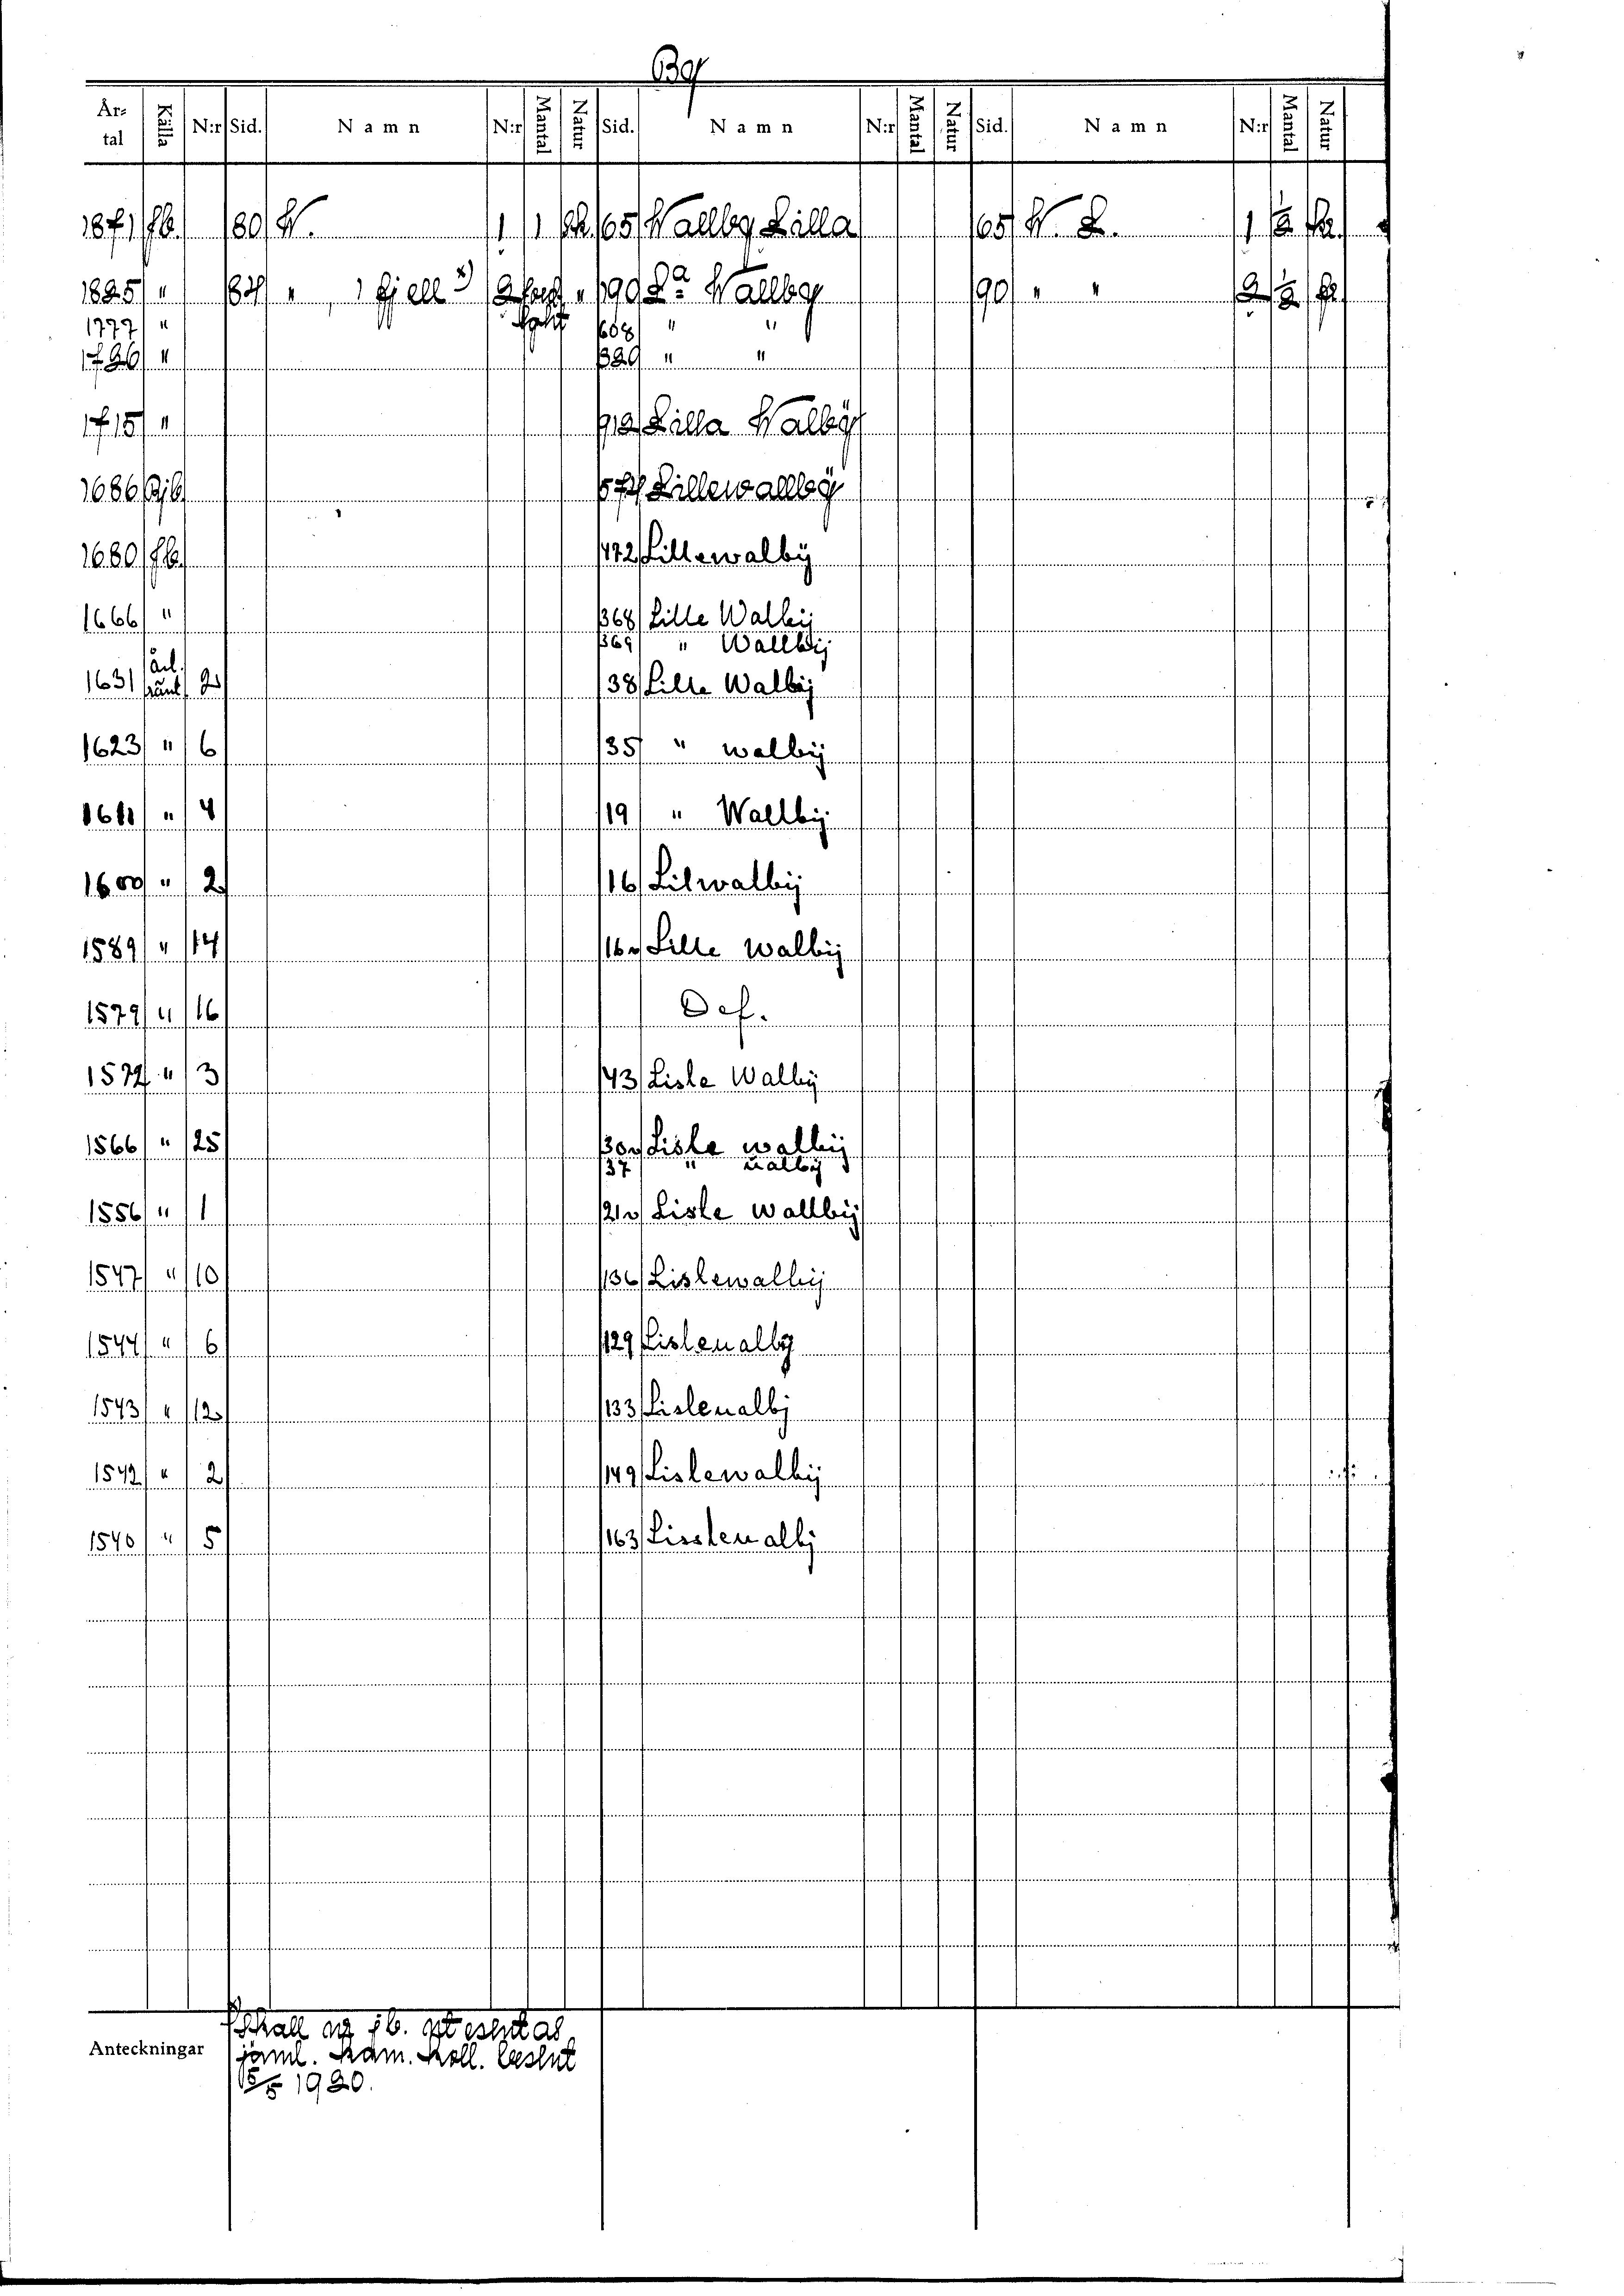 By
År-tal Källa N:r Sid. Namn N:r Mantal Natur Sid. Namn N:r Mantal Natur Sid. Namn N:r Mantal Natur
1871 Jb. 80 W. 1 1 Sk. 65 Wallby Lilla 65 W. L. 1 1/2 Sk.
1825 " 84 " , 1 fjell x) 2 " 190 L:a Wallby 90 " " 2 1/2
1777 " 608 " "
1726 " 320 " "
1715 " 912 Lilla Walbÿ
1686 Rjb. 574 Lillewallbÿ
1680 Jb. 472 Lillewalbÿ
1666 " 368 Lille Walbij
369 " Wallbij
1631 årl. ränt. 2 38 Lille Walbij
1623 " 6 35 " walbij
1611 " 4 19 " Wallbij
1600 " 2 16 Lilwalbij
1589 " 14 16v Lille walbij
1579 " 16 Def.
1572 " 3 43 Lisle Walbij
1566 " 25 30v Lisle walbij
37 " ualbij
1556 " 1 21v Lisle wallbij
1547 " 10 136 Lislewalbij
1544 " 6 129 Lisleualby
1543 " 12 133 Lisleualbj
1542 " 2 149 Lislewalbij
1540 " 5 163 Lissleualbj
Anteckningar
skall ur jb. uteslutas
jäml. Kam. Koll. beslut
5/5 1920.